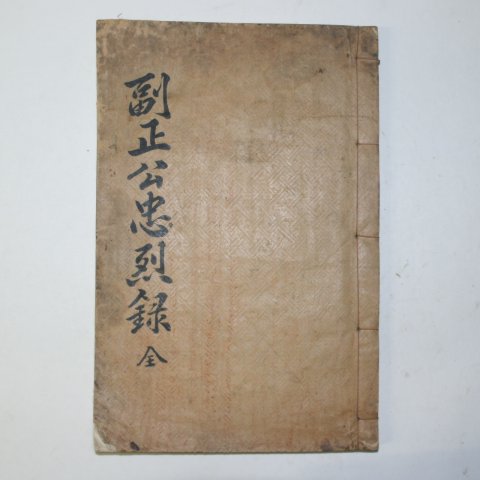 副正公忠烈録
全